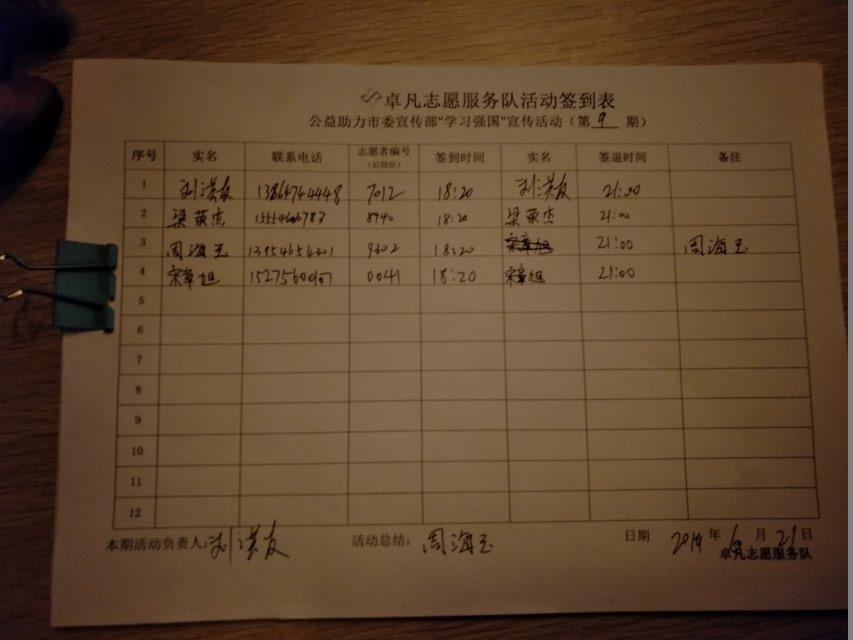 卓凡志愿服务队活动签到表
公益助力市委宣传部"学习强国"宣传活动（第 9 期）
序号 实名 联系电话 志愿者编号（后四位） 签到时间 实名 签退时间 备注
1 刘洪友 13864744448 7012 18:20 刘洪友 21:00
2 梁荣杰 8940 18:20 梁荣杰 21:00
3 周海玉 13954654301 9202 18:20 21:00 周海玉
4 宋章旭 0041 18:20 宋章旭 21:00
5
6
7
8
9
10
11
12
本期活动负责人：刘洪友 活动总结：周海玉 日期 2019 年 6 月 21 日
卓凡志愿服务队